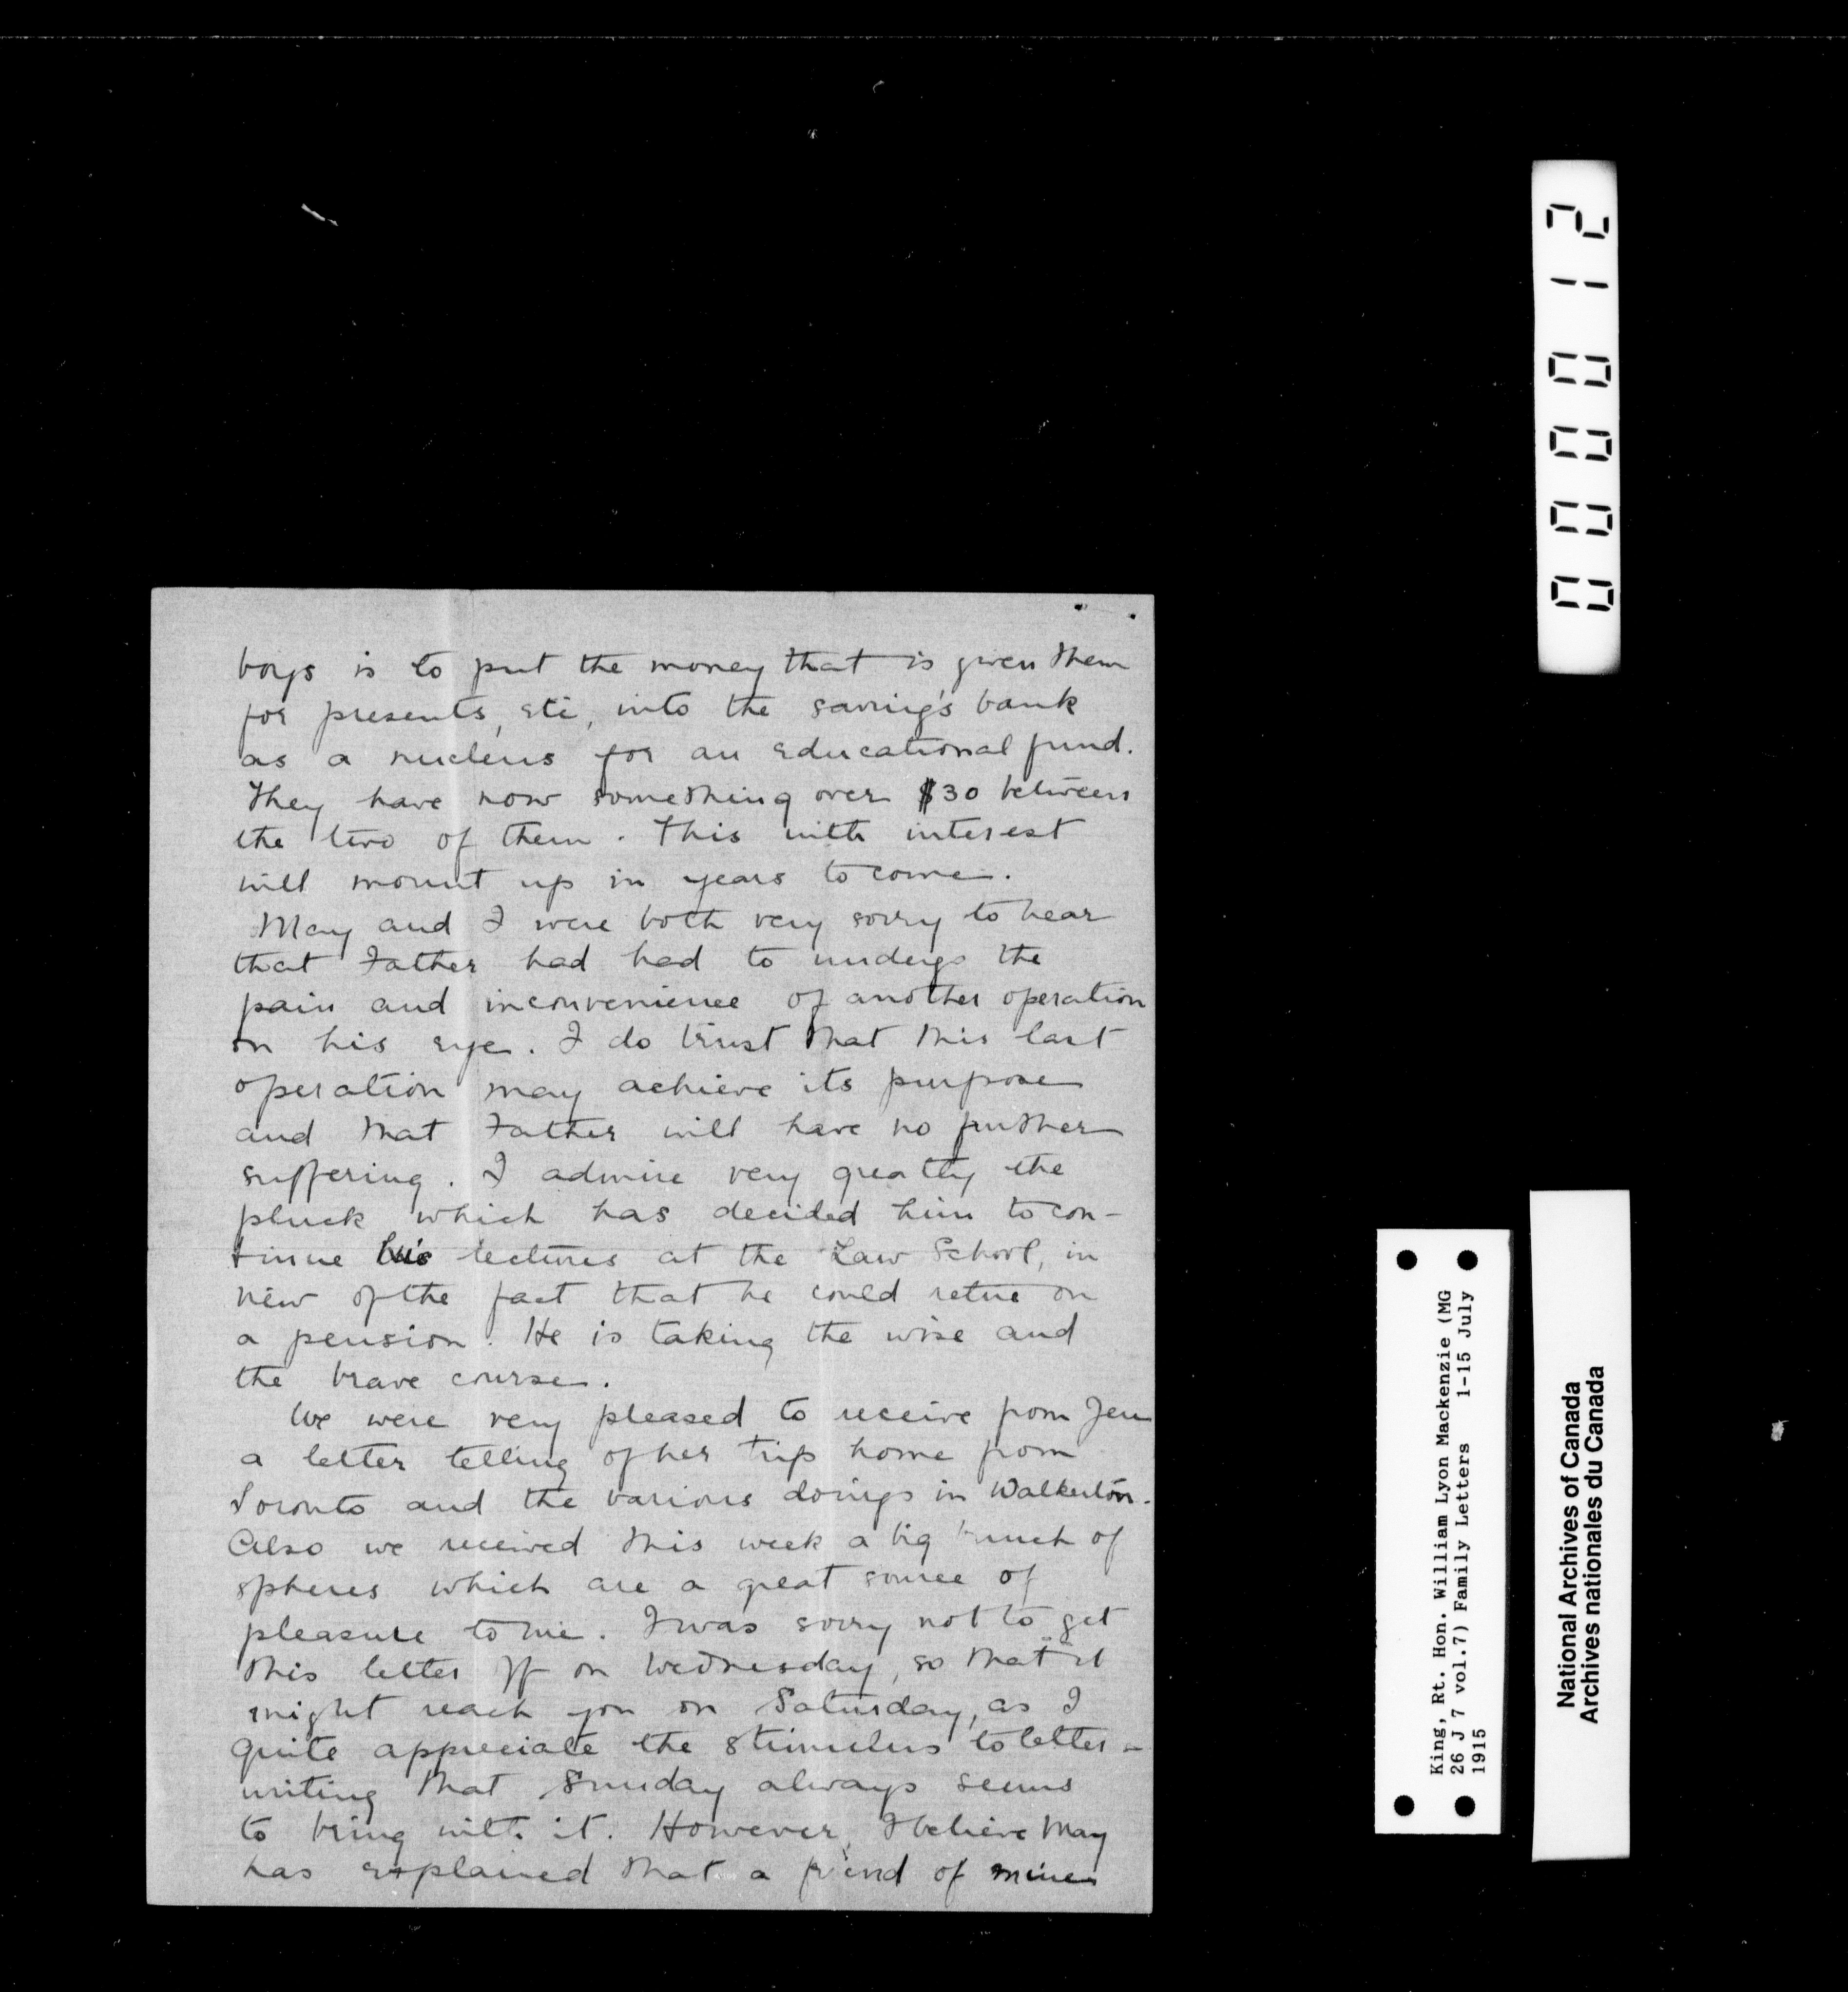 boys is to put the money that is given them
for presents, etc, into the saving's bank
as a nucleus for an educational fund.
They have now something over $30 between
the two of them. This with interest
will mount up in years to come.
May and I were both very sorry to hear
that Father had had to undergo the
pain and inconvenience of another operation
on his eye. I do trust that this last
operation may achieve its purpose
and that Father will have no further
suffering. I admire very greatly the
pluck which has decided him to con-
tinue his lectures at the Law School, in
view of the fact that he could retire on
a pension. He is taking the wise and
the brave course.
We were very pleased to receive from Jen
a letter telling of her trip home from
Toronto and the various doings in Walkerton.
Also we received this week a big bunch of
spheres which are a great source of
pleasure to me. I was sorry not to get
this letter off on Wednesday, so that it
might reach you on Saturday, as I
quite appreciate the stimulus to letter-
writing that Sunday always seems
to bring with it. However, I believe May
has explained that a friend of mine
000012
King, Rt. Hon. William Lyon Mackenzie (MG
26 J 7 vol.7) Family Letters 1-15 July
1915
National Archives of Canada
Archives nationales du Canada